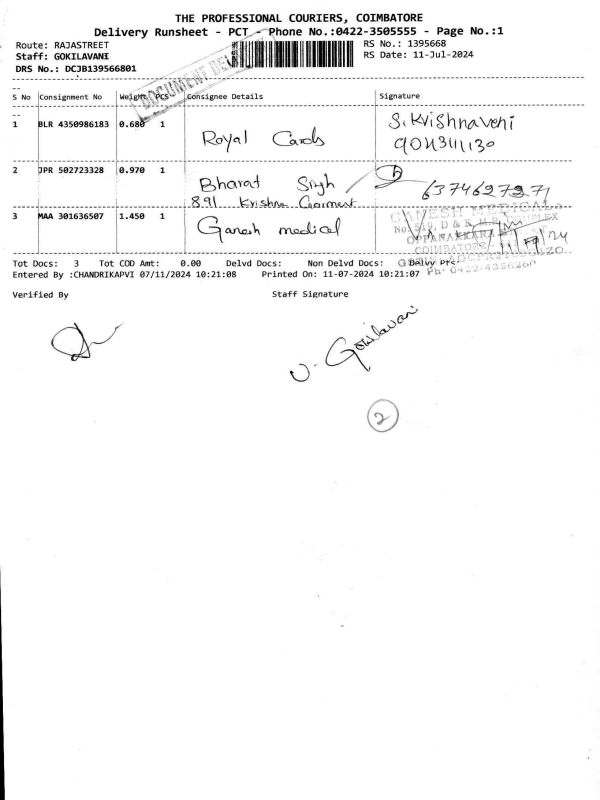 THE PROFESSIONAL COURIERS, COIMBATORE
Delivery Runsheet - PCT - Phone No.:0422-3505555 - Page No.:1
Route: RAJASTREET
RS No.: 1395668
Staff: GOKILAVANI
RS Date: 11-Jul-2024
DRS No.: DCJB139566801
DOCUMENT DEL
S No Consignment No Weight PCS Consignee Details Signature
1 BLR 4350986183 0.680 1 Royal Cards S. Krishnaveni
2 JPR 502723328 0.970 1 Bharat Singh
891 Krishna Garment
3 MAA 301636507 1.450 1 Ganesh medical
GANESH MEDICAL
COIMBATORE
Tot Docs: 3 Tot COD Amt: 0.00 Delvd Docs: Non Delvd Docs: 0 Delvy Prs:
Entered By :CHANDRIKAPVI 07/11/2024 10:21:08 Printed On: 11-07-2024 10:21:07
Verified By Staff Signature
V. Gokilavani
2